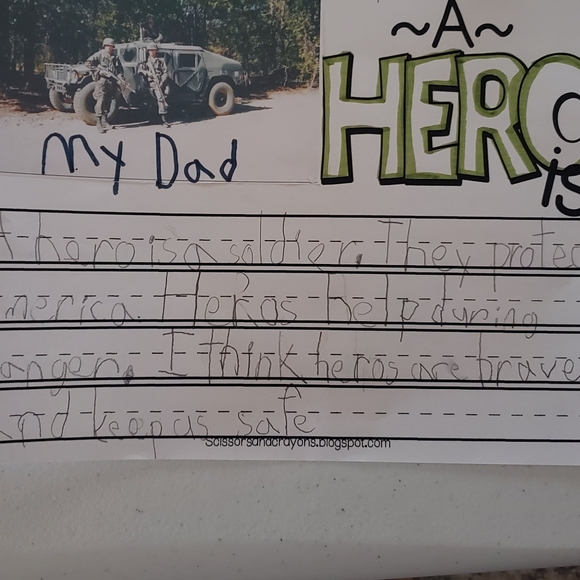 ~A~
HERO
is
My Dad
A hero is a soldier. They protec
merica. Heros help during
anger. I think heros are brave
and keep us safe
Scissorsandcrayons.blogspot.com